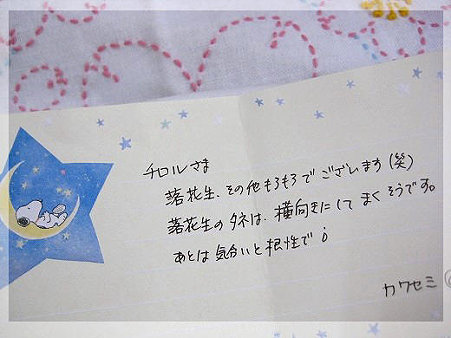 チロルさま
落花生、その他もろもろでございます(笑)
落花生のタネは、横向きにしてまくそうです。
あとは気合いと根性で
カワセミ